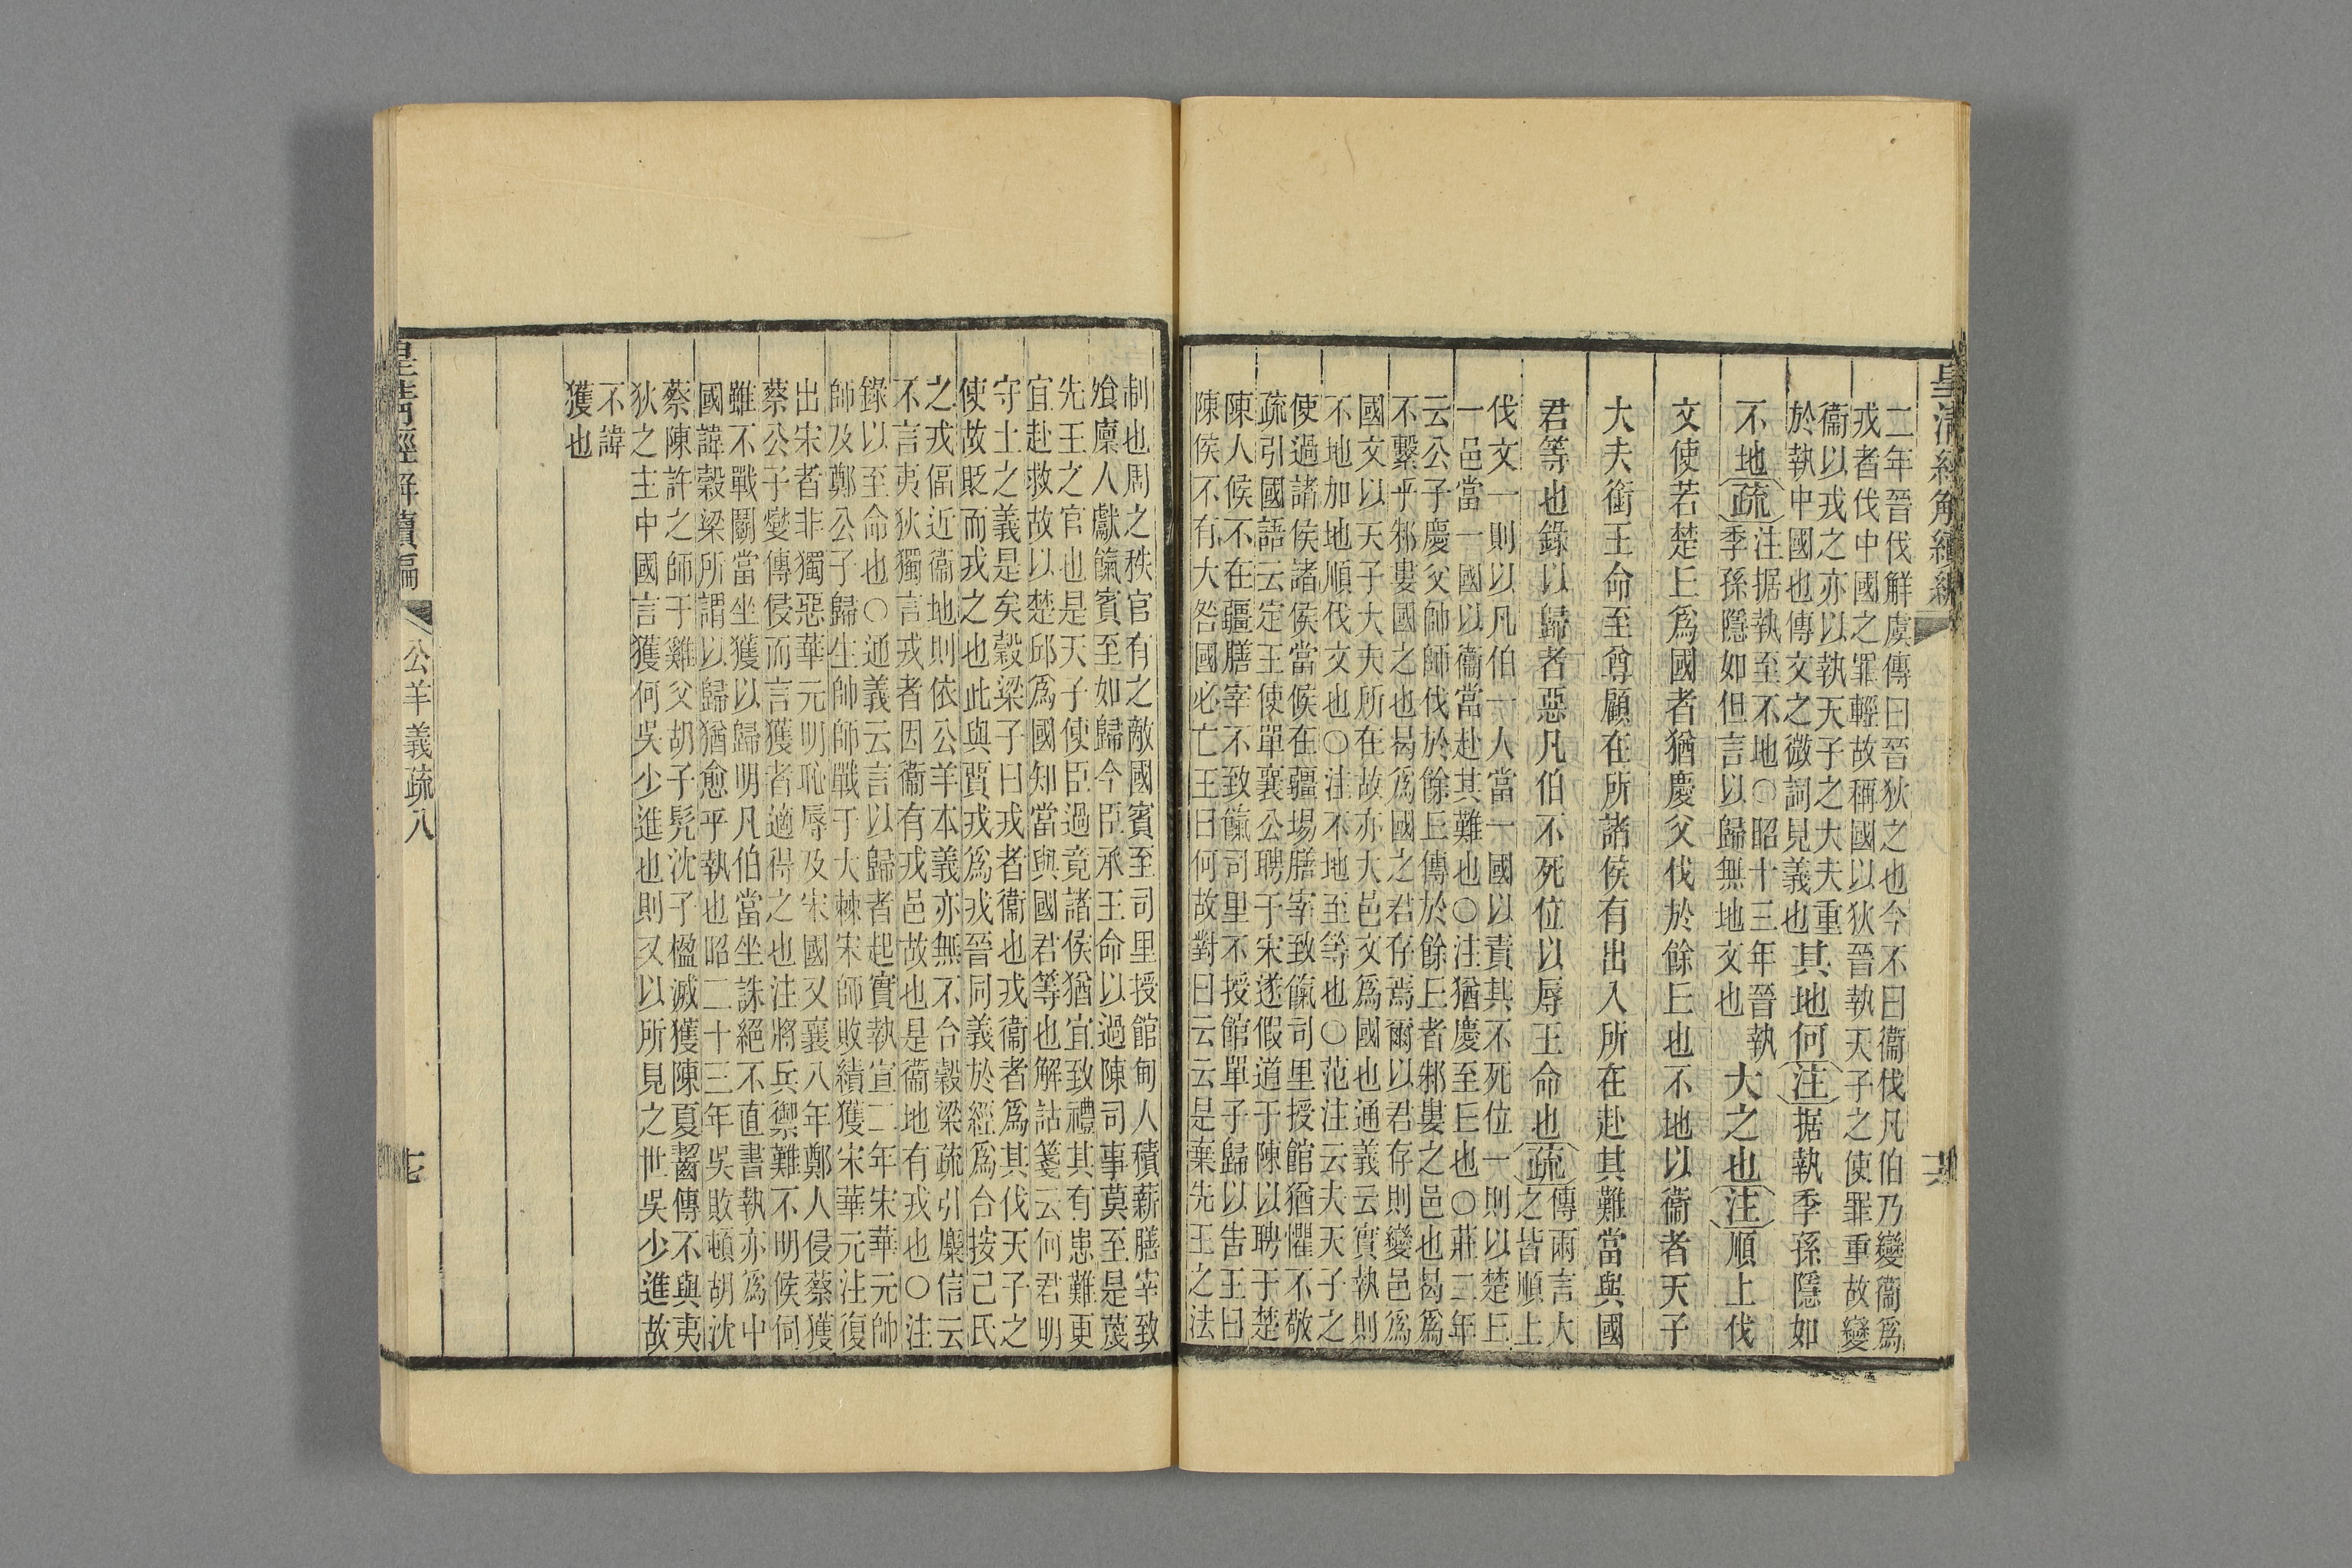 皇清經解續編
二年晉伐鮮虞傳曰晉狄之也今不曰衞伐凡伯乃變衞爲
戎者伐中國之罪輕故稱國以狄晉執天子之使罪重故變
衞以戎之亦以執天子之大夫重
於執中國也傳文之微詞見義也
其地何注据執季孫隱如
不地疏
注据執至不地○昭十三年晉執
季孫隱如但言以歸無地文也
大之也注順上伐
文使若楚丘爲國者猶慶父伐於餘丘也不地以衞者天子
大夫銜王命至尊顧在所諸侯有出入所在赴其難當與國
君等也錄以歸者惡凡伯不死位以辱王命也疏
傳兩言大
之皆順上
伐文一則以凡伯一人當一國以責其不死位一則以楚丘
一邑當一國以衞當赴其難也○注猶慶至丘也○莊二年
云公子慶父帥師伐於餘丘傳於餘丘者邾婁之邑也曷爲
不繫乎邾婁國之也曷爲國之君存焉爾以君存則變邑爲
國文以天子大夫所在故亦大邑文爲國也通義云實執則
不地加地順伐文也○注不地至等也○范注云夫天子之
使過諸侯諸侯當候在疆場膳宰致餼司里授館猶懼不敬
疏引國語云定王使單襄公聘于宋遂假道于陳以聘于楚
陳人候不在疆膳宰不致餼司里不授館單子歸以告王曰
陳侯不有大咎國必亡王曰何故對曰云云是棄先王之法
制也周之秩官有之敵國賓至司里授館甸人積薪膳宰致
飧廩人獻餼賓至如歸今臣承王命以過陳司事莫至是蔑
先王之官也是天子使臣過竟諸侯猶宜致禮其有患難更
宜赴救故以楚邱爲國知當與國君等也解詁箋云何君明
守土之義是矣穀梁子曰戎者衞也戎衞者爲其伐天子之
使故貶而戎之也此與賈戎爲戎晉同義於經爲合按己氏
之戎偪近衞地則依公羊本義亦無不合穀梁疏引麋信云
不言夷狄獨言戎者因衞有戎邑故也是衞地有戎也○注
錄以至命也○通義云言以歸者起實執宣二年宋華元帥
師及鄭公子歸生帥師戰于大棘宋師敗績獲宋華元注復
出宋者非獨惡華元明恥辱及宋國又襄八年鄭人侵蔡獲
蔡公子燮傳侵而言獲者適得之也注將兵禦難不明候伺
雖不戰鬭當坐獲以歸明凡伯當坐誅絕不直書執亦爲中
國諱穀梁所謂以歸猶愈乎執也昭二十三年吳敗頓胡沈
蔡陳許之師于雞父胡子髡沈子楹滅獲陳夏齧傳不與夷
狄之主中國言獲何吳少進也則又以所見之世吳少進故
不諱
獲也
皇清經解續編
公羊義疏八